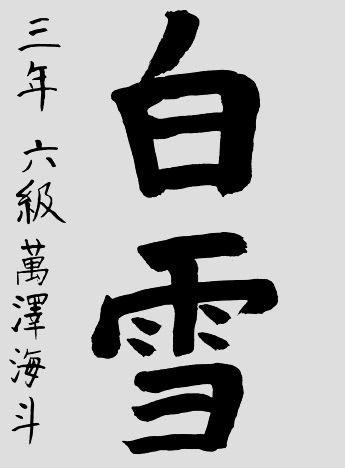 白雪
三年 六級 萬澤海斗